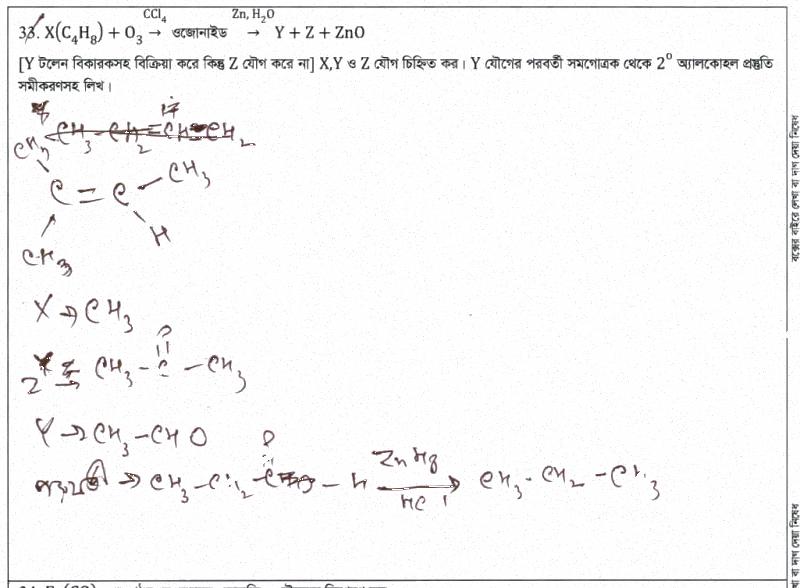 33. X(C₄H₈) + O₃ →(CCl₄) ওজোনাইড →(Zn, H₂O) Y + Z + ZnO
[Y টলেন বিকারকসহ বিক্রিয়া করে কিন্তু Z যৌগ করে না] X,Y ও Z যৌগ চিহ্নিত কর। Y যৌগের পরবর্তী সমগোত্রক থেকে 2⁰ অ্যালকোহল প্রস্তুতি
সমীকরণসহ লিখ।
CH₃
C = C – CH₃
H
CH₃
X → CH₃
O
Z → CH₃ – C – CH₃
Y → CH₃ – CHO
O
পরবর্তী → CH₃ – CH₂ – C – H →(ZnHg, HCl) CH₃ - CH₂ – CH₃
বক্সের বাইরে লেখা বা দাগ দেয়া নিষেধ
বা দাগ দেয়া নিষেধ